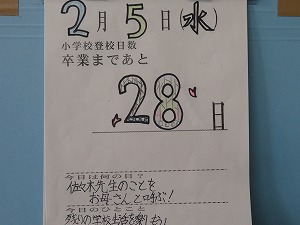 2月5日(水)
小学校登校日数
卒業まであと
28日
今日は何の日?
佐々木先生のことを
お母さんと呼ぶ!
今日のひとこと
残りの学校生活を楽しもう!